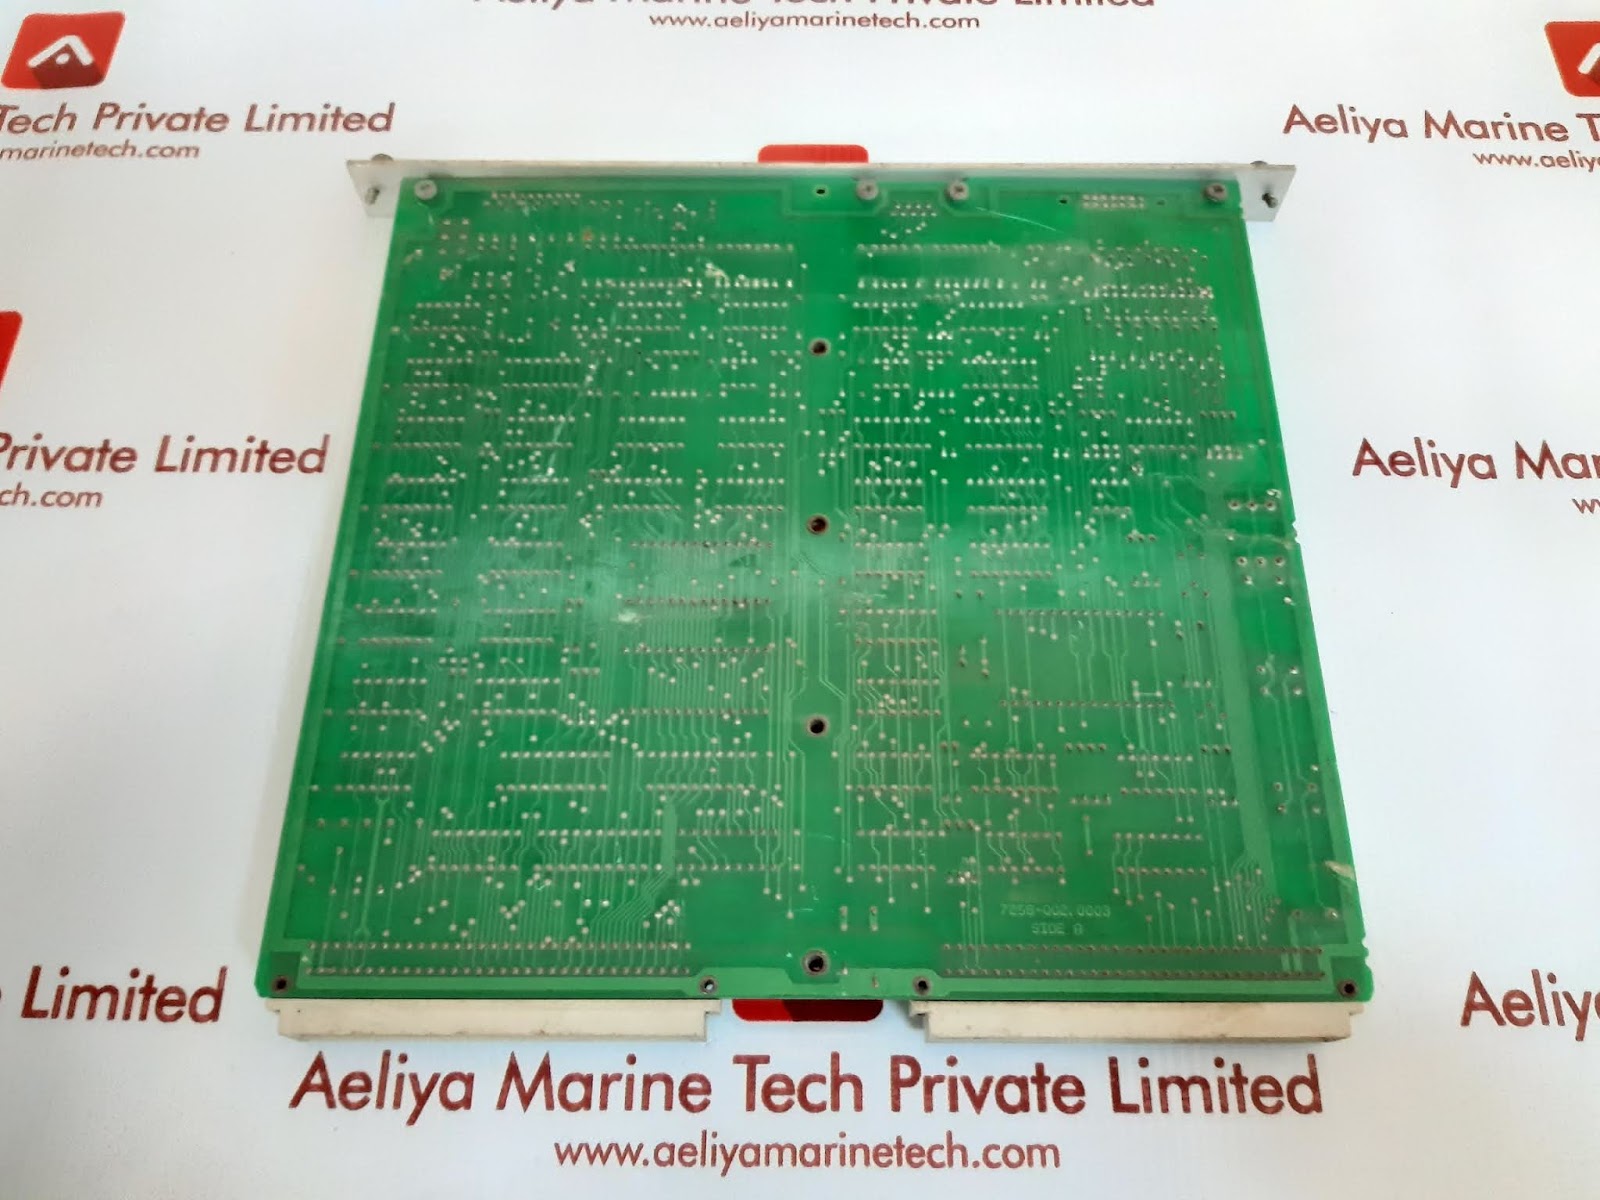 Aeliya Marine Tech Private Limited
www.aeliyamarinetech.com
Tech Private Limited
marinetech.com
Aeliya Marine T
www.aeliy
Private Limited
ch.com
Aeliya Mar
w
7256-002.0003
SIDE A
Limited
Aeliy
Aeliya Marine Tech Private Limited
www.aeliyamarinetech.com